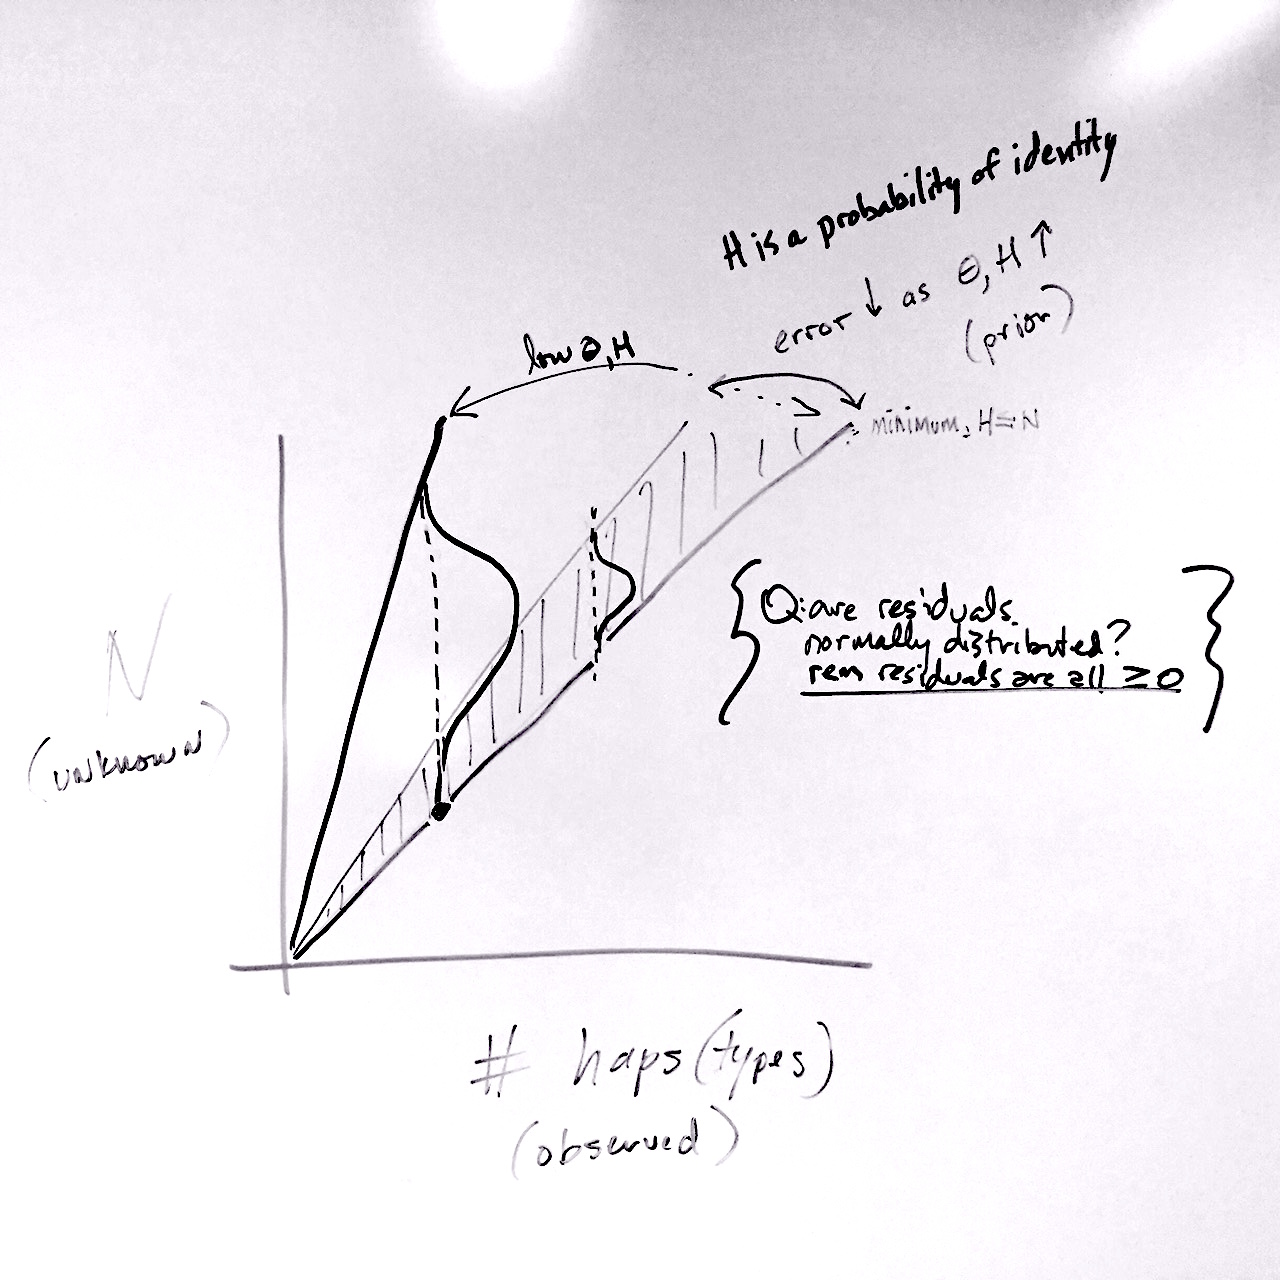 H is a probability of identity
error ↓ as θ, H ↑
(prior)
low θ, H
minimum, H=N
Q: are residuals
normally distributed?
rem residuals are all ≥0
N
(unknown)
# haps (types)
(observed)